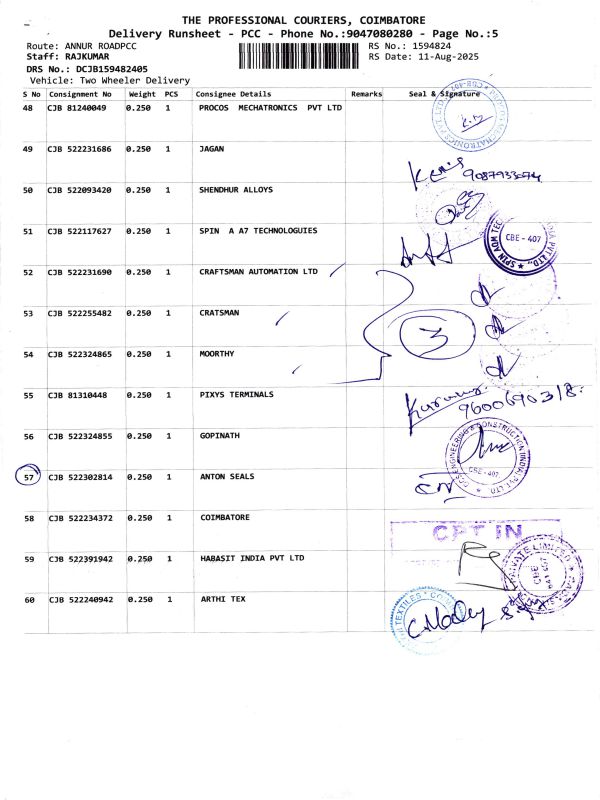 THE PROFESSIONAL COURIERS, COIMBATORE
Delivery Runsheet - PCC - Phone No.:9047080280 - Page No.:5
Route: ANNUR ROADPCC RS No.: 1594824
Staff: RAJKUMAR RS Date: 11-Aug-2025
DRS No.: DCJB159482405
Vehicle: Two Wheeler Delivery
S No Consignment No Weight PCS Consignee Details Remarks Seal & Signature
48 CJB 81240049 0.250 1 PROCOS MECHATRONICS PVT LTD
49 CJB 522231686 0.250 1 JAGAN
9087933074
50 CJB 522093420 0.250 1 SHENDHUR ALLOYS
51 CJB 522117627 0.250 1 SPIN A A7 TECHNOLOGUIES
CBE - 407
52 CJB 522231690 0.250 1 CRAFTSMAN AUTOMATION LTD
53 CJB 522255482 0.250 1 CRATSMAN
3
54 CJB 522324865 0.250 1 MOORTHY
55 CJB 81310448 0.250 1 PIXYS TERMINALS
9600690318
56 CJB 522324855 0.250 1 GOPINATH
CBE - 407
57 CJB 522302814 0.250 1 ANTON SEALS
58 CJB 522234372 0.250 1 COIMBATORE
59 CJB 522391942 0.250 1 HABASIT INDIA PVT LTD
60 CJB 522240942 0.250 1 ARTHI TEX